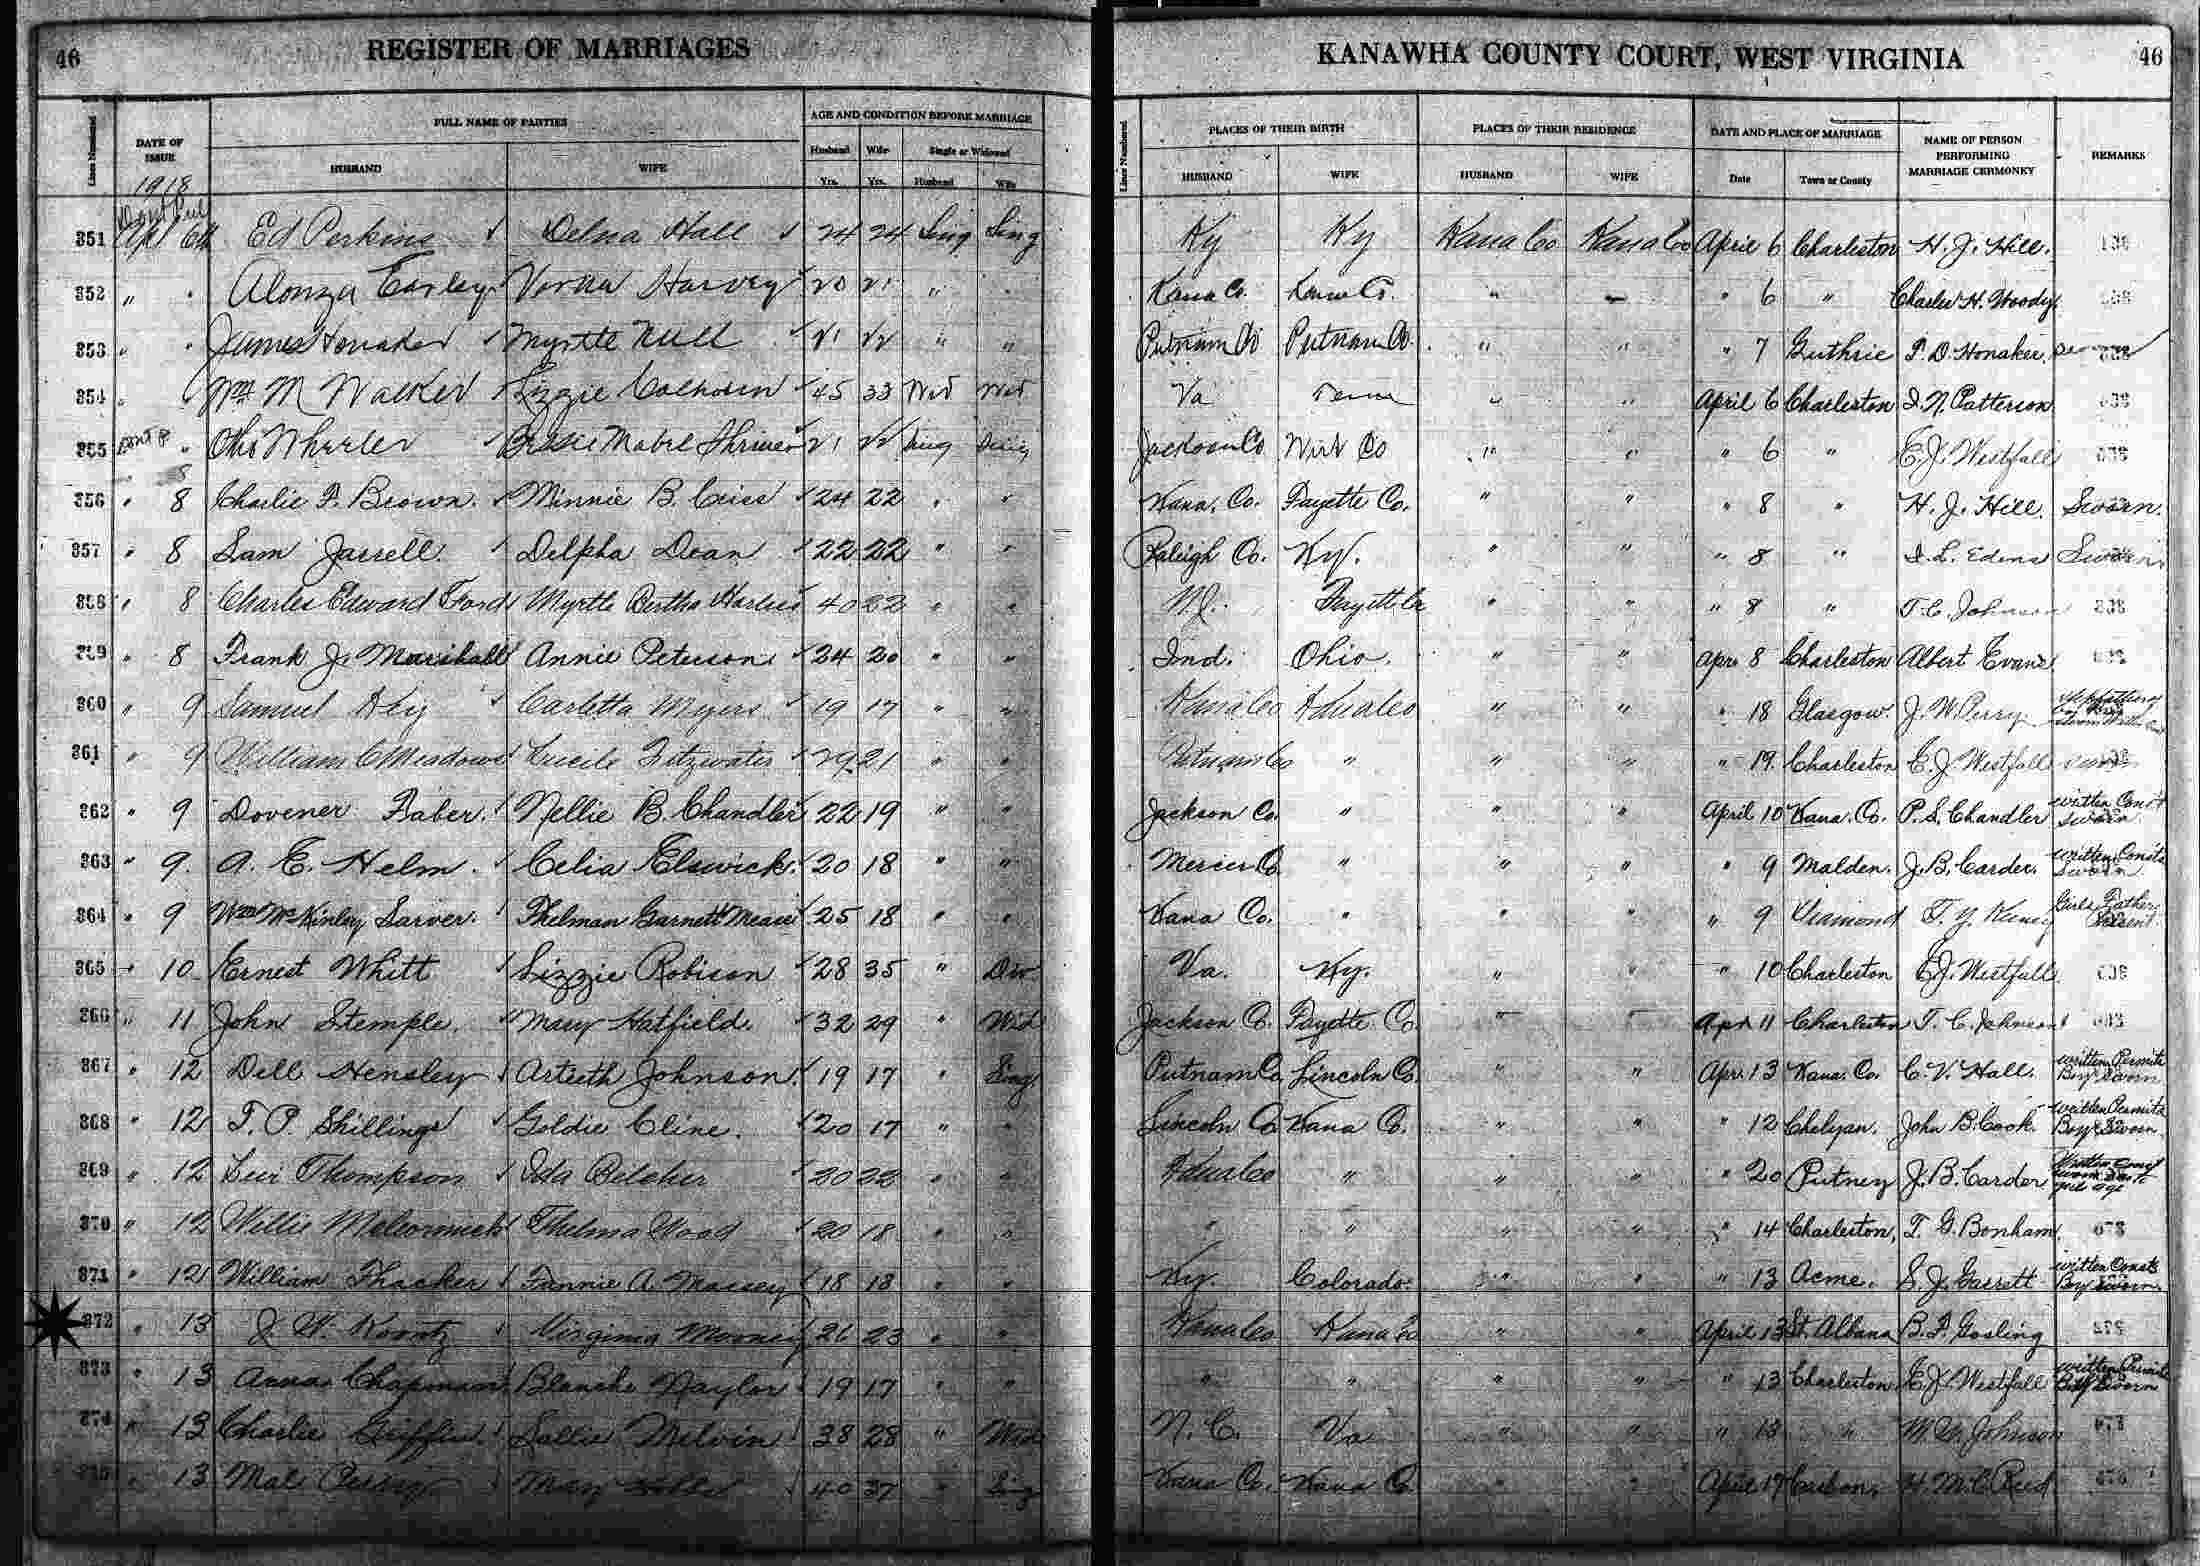 46 REGISTER OF MARRIAGES KANAWHA COUNTY COURT, WEST VIRGINIA 46
Lines Numbered DATE OF ISSUE FULL NAME OF PARTIES AGE AND CONDITION BEFORE MARRIAGE Lines Numbered PLACES OF THEIR BIRTH PLACES OF THEIR RESIDENCE DATE AND PLACE OF MARRIAGE NAME OF PERSON PERFORMING MARRIAGE CERMONKY REMARKS
HUSBAND WIFE Husband Wife Single or Widowed HUSBAND WIFE HUSBAND WIFE Date Town or County
Yrs. Yrs. Husband Wife
1918
851 Apl 6th Ed Perkins Delna Hall 24 24 Sing Sing Ky Ky Kana Co Kana Co April 6 Charleston H. J. Hill.
852 " Alonza Earley Verna Harvey 20 21 " Kana Co. Kana Co. " " 6 " Charles H. Woody
853 " James Honaker Myrtle Null 21 22 " " Putnam Co Putnam Co. " " " 7 Guthrie P. D. Honaker
854 " Wm M Walker Lizzie Calhoun 45 33 Wid Wid Va Tenn " " April 6 Charleston I. N. Patterson
855 " Otho Wheeler Bessie Mabel Shriver 21 22 Sing Sing Jackson Co Wirt Co " " " 6 " E. J. Westfall
856 " 8 Charlie F. Brown. Minnie B. Criss 24 22 " " Kana. Co. Fayette Co. " " " 8 " H. J. Hill. Sworn.
857 " 8 Sam Jarrell. Delpha Dean 22 22 " " Raleigh Co. Ky. " " " 8 " I. L. Edens Sworn
858 " 8 Charles Edward Ford Myrtle Bertha Harless 40 22 " " Fayette Co " " " 8 " T. C. Johnson
859 " 8 Frank J. Marshall Annie Peterson 24 20 " " Ind. Ohio. " " Apr. 8 Charleston Albert Evans
860 " 9 Samuel Carletta Myers 19 17 " " Kana Co Kana Co " " " 18 Glasgow. J. W. Perry
861 " 9 William C Meadows Lucile Fitzwater 29 21 " " Putnam Co " " " " 19 Charleston E. J. Westfall
862 " 9 Dovener Faber. Nellie B. Chandler 22 19 " " Jackson Co. " " " April 10 Kana. Co. P. S. Chandler written Const Sworn
863 " 9. A. E. Helm. Celia Elswick. 20 18 " " Mercer Co. " " " " 9 Malden. J. B. Carder. written Const Sworn
864 " 9 Wm McKinley Sarver. Thelman Garnett 25 18 " " Kana Co. " " " " 9 Diamond T. Y. Girls Father Present
865 " 10 Ernest Whitt Lizzie Robison 28 35 " Div Va. Ky. " " " 10 Charleston E. J. Westfall
866 " 11 John Stemple. Mary Hatfield. 32 29 " Wid Jackson Co. Fayette Co. " " Apr 11 Charleston T. C. Johnson
867 " 12 Dell Hensley Arteeth Johnson. 19 17 " Sing. Putnam Co Lincoln Co. " " Apr. 13 Kana. Co. C. V. Hall. written Permits Boy Sworn
868 " 12 T. P. Shillings Goldie Cline. 20 17 " " Lincoln Co Kana Co. " " " 12 Chelyan. John B. Cook. written Permits Boy Sworn
869 " 12 Levi Thompson Ida Belcher 20 22 " " Kana Co " " " " 20 Putney J. B. Carder Written Const
870 " 12 Willie McCormick Thelma Wood 20 18 " " " " " " " 14 Charleston, T. G. Bonham
871 " 12 William Thacker Fannie A. Massey 18 18 " " Ky. Colorado. " " " 13 Acme. S. J. Garrett written Const Boy Sworn
872 " 13 J W. Koontz Virginia Mooney 26 23 " " Kana Co Kana Co " " April 13 St. Albans B. F. Gosling
873 " 13 Chapman Blanche Naylor 19 17 " " " " " " " 13 Charleston E. J. Westfall written Permits Boy Sworn
874 " 13 Charlie Griffin. Sallie Melvin 38 28 " Wid N. C. Va " " " 13 " Johnson
875 " 13 Mal Perry May 40 37 " Sing Kana Co. Kana Co " " April 17 Carbon. H. M. C. Reed